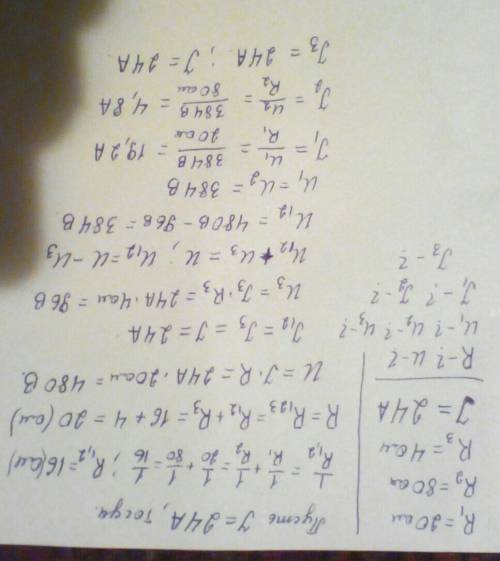 R₁=20 ом
R₂=80 ом
R₃=4 ом
J=24A
R-? U-?
U₁-? U₂-? U₃-?
J₁-? J₂-?
J₃-?
Пусть J=24A, тогда
1/R₁,₂ = 1/R₁ + 1/R₂ = 1/20 + 1/80 = 1/16 ; R₁,₂=16(ом)
R=R₁₂₃=R₁₂+R₃=16+4=20(ом)
U=J·R=24A·20ом=480 В.
J₁₂=J₃=J=24A
U₃=J₃·R₃=24A·4ом=96В
U₁₂+U₃=U; U₁₂=U-U₃
U₁₂=480В-96В=384В
U₁=U₂=384В
J₁=U₁/R₁=384В/20ом=19,2A
J₂=U₂/R₂=384В/80ом=4,8A
J₃=24A ; J=24A